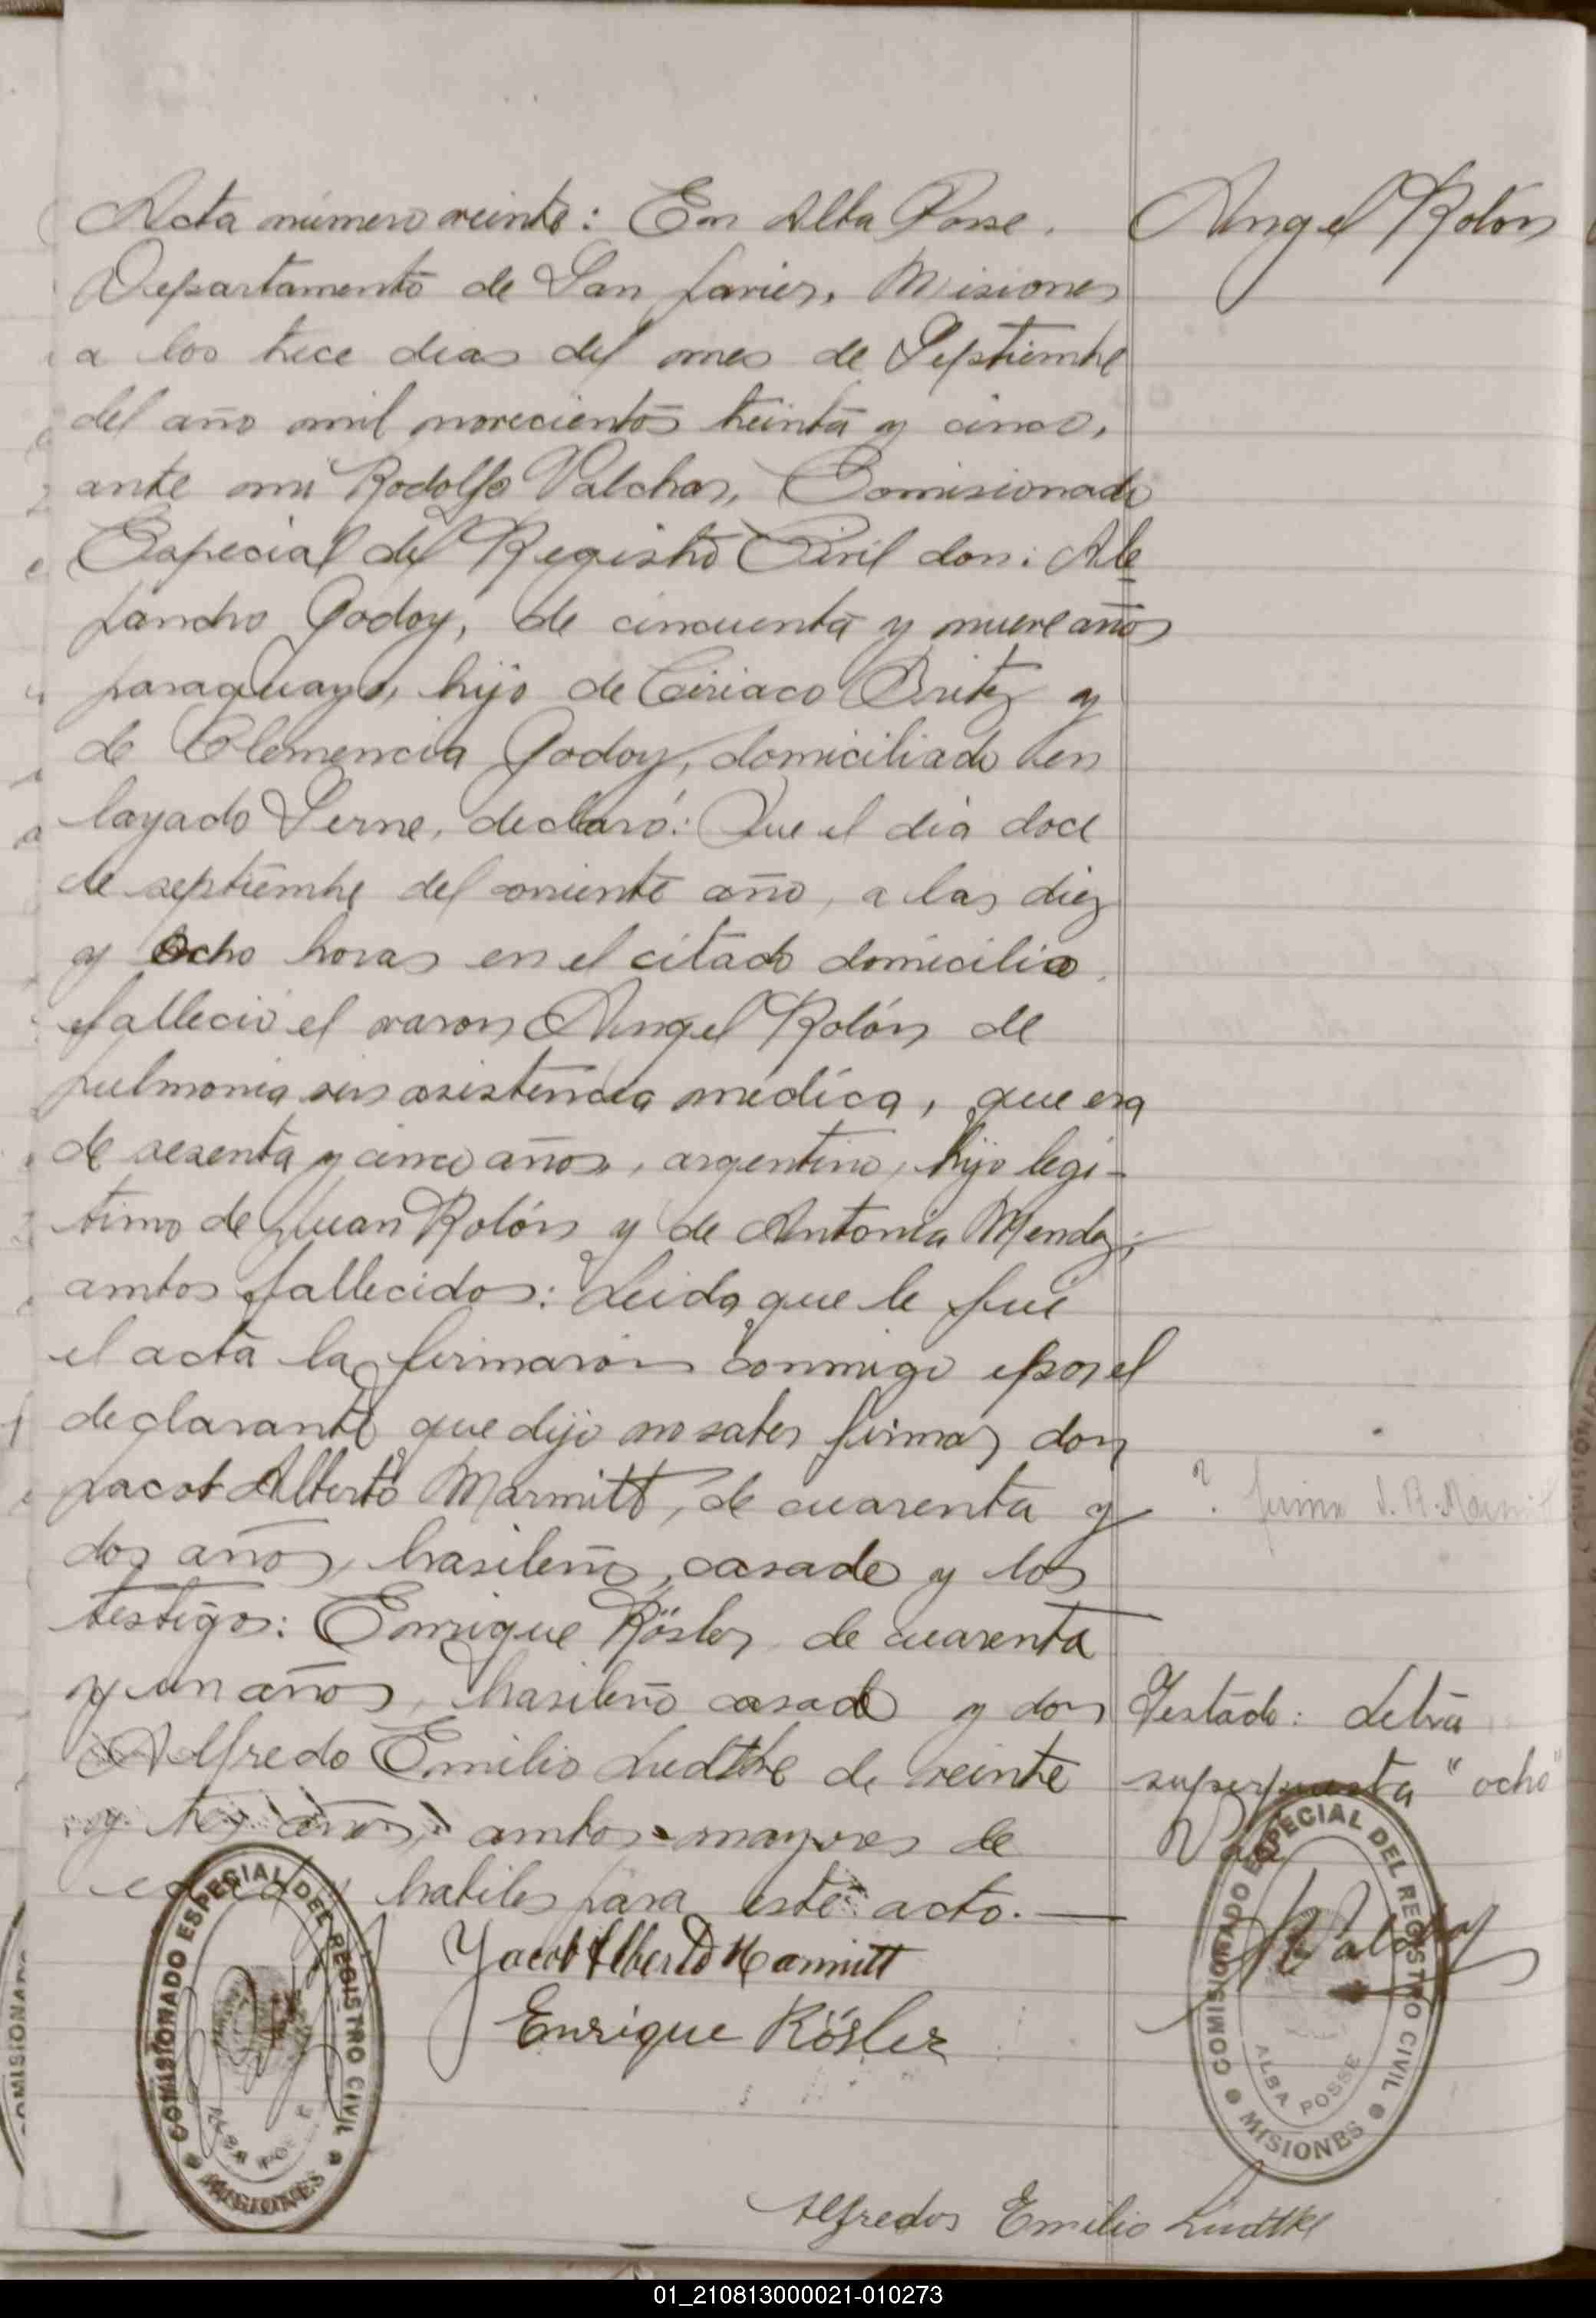 Acta número veinte: En Alba Posse.
Departamento de San Javier, Misiones
a los trece dias del mes de Septiembre
del año mil novecientos treinta y cinco,
ante mi Rodolfo Valchar, Comisionado
Especial del Registro Civil don: Ale
jandro Godoy, de cincuenta y nueve años
paraguayo, hijo de Ciriaco Britez y
de Clemencia Godoy, domiciliado en
layado Serne, declaró: Que el dia doce
de septiembre del corriente año, a las diez
y ocho horas en el citado domicilio
falleció el varon Angel Rolón de
pulmonia sin asistencia medica, que era
de sesenta y cinco años, argentino, hijo legi-
timo de Juan Rolón y de Antonia Mendez;
ambos fallecidos: Leida que le fué
el acta la firmaron conmigo y por el
declarante que dijo no saber firmar, don
Jacob Alberto Marmitt, de cuarenta y
dos años, brasileño, casado y los
testigos: Enrique Rösler, de cuarenta
y un años, brasileño casado y don
Alfredo Emilio Ludtke de veinte
y tres años, ambos mayores de
edad y habiles para este acto.—
Jacob Alberto Marmitt
Enrique Rösler
Alfredos Emilio Ludtke
Angel Rolón
? firma J. A. Marmitt
Testado: Letra
superpuesta "ocho"
Vale
COMISIONADO ESPECIAL DEL REGISTRO CIVIL
ALBA POSSE
MISIONES
COMISIONADO ESPECIAL DEL REGISTRO CIVIL
ALBA POSSE
MISIONES
COMISIONADO
01_210813000021-010273